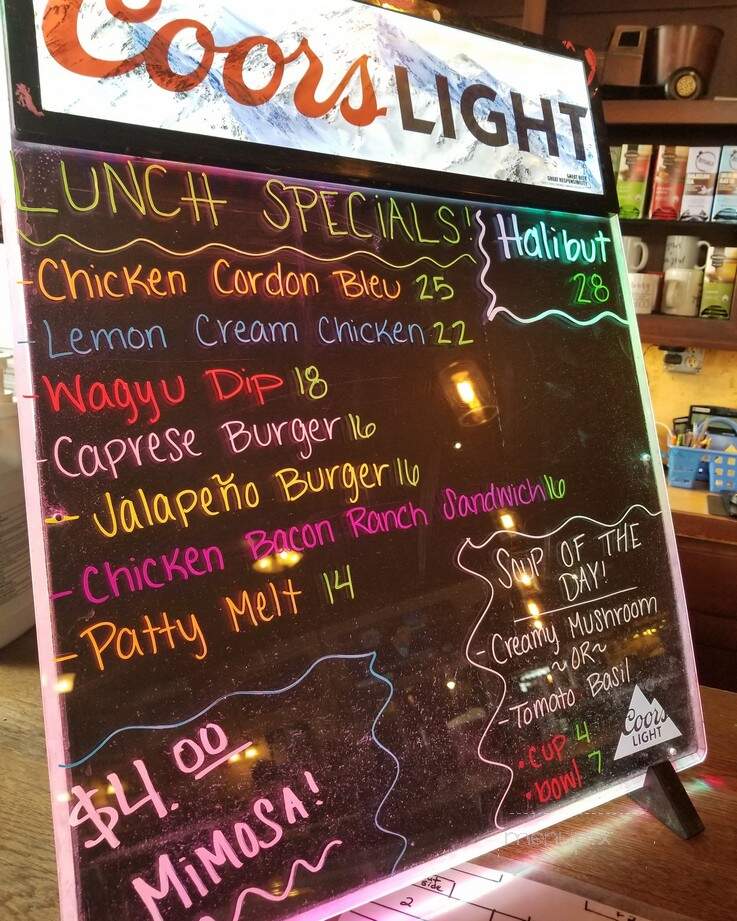 Coors LIGHT
GREAT BEER
GREAT RESPONSIBILITY
LUNCH SPECiALS!
- Chicken Cordon Bleu 25
- Lemon Cream Chicken 22
- Wagyu Dip 18
- Caprese Burger 16
- Jalapeño Burger 16
- Chicken Bacon Ranch Sandwich 16
- Patty Melt 14
Halibut
28
SOUP OF THE
DAY!
- Creamy Mushroom
~OR~
- Tomato Basil
• CUP 4
• bowl 7
Coors
LIGHT
$4.00
MiMOSA!
2